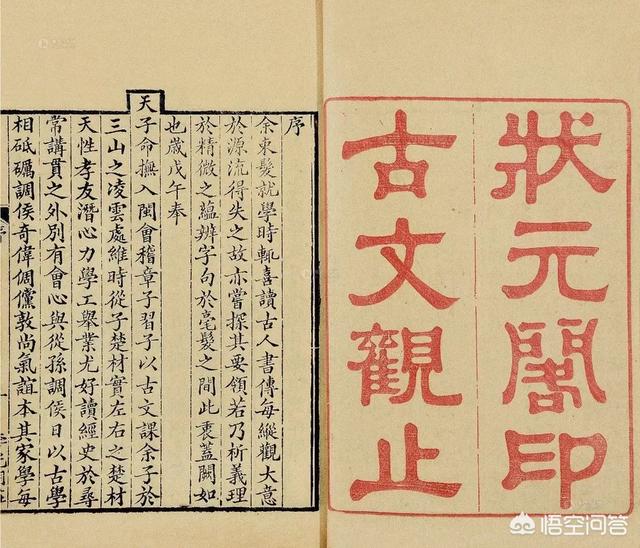 狀元閣印
古文觀止
序
余束髮就學時輒喜讀古人書傳每縱觀大意
於源流得失之故亦嘗探其要領若乃析義理
於精微之蘊辨字句於毫髮之間此衷蓋闕如
也歲戊午奉
天子命撫入閩會稽章子習子以古文課余子於
三山之凌雲處維時從子楚材實左右之楚材
天性孝友潛心力學工舉業尤好讀經史於尋
常講貫之外別有會心與從孫調侯日以古學
相砥礪調侯奇偉倜儻敦尚氣誼本其家學每
悟空问答